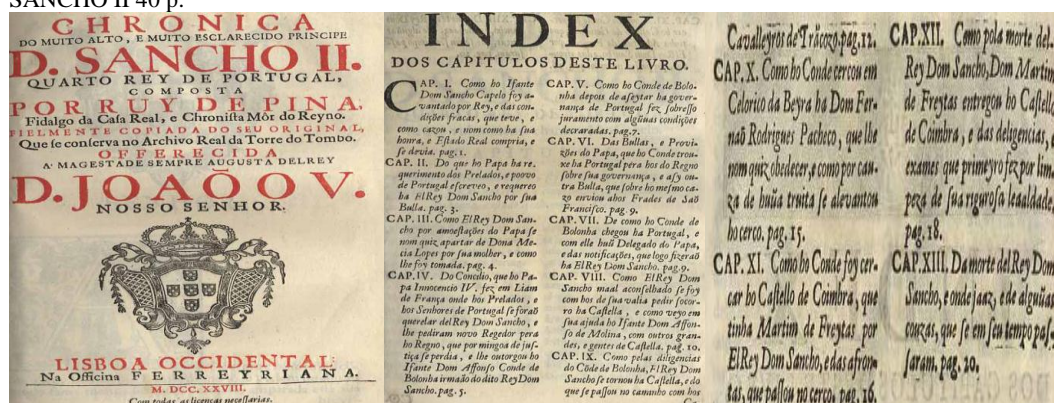 SANCHO II 40 p.
CHRONICA
DO MUITO ALTO, E MUITO ESCLARECIDO PRINCIPE
D. SANCHO II.
QUARTO REY DE PORTUGAL,
COMPOSTA
POR RUY DE PINA,
Fidalgo da Caſa Real, e Chroniſta Mòr do Reyno.
FIELMENTE COPIADA DO SEU ORIGINAL,
Que ſe conſerva no Archivo Real da Torre do Tombo.
OFFERECIDA
A' MAGESTADE SEMPRE AUGUSTA DELREY
D. JOAÕ O V.
NOSSO SENHOR.
LISBOA OCCIDENTAL,
Na Officina FERREYRIANA.
M. DCC. XXVIII.
Com todas as licenças neceſſarias.
INDEX
DOS CAPITULOS DESTE LIVRO.
CAP. I. Como ho Ifante
Dom Sancho Capelo foy a-
vantado por Rey, e das con-
dições fracas, que teve, e
como cazou, e nom como ha ſua
honra, e Eſtado Real compria, e
ſe devia. pag. 1.
CAP. II. Do que ho Papa ha re-
querimento dos Prelados, e poovo
de Portugal eſcreveo, e requereo
ha ElRey Dom Sancho por ſua
Bulla. pag. 3.
CAP. III. Como ElRey Dom San-
cho por amoeſtações do Papa ſe
nom quiz apartar de Dona Me-
cia Lopes por ſua molher, e como
lhe foy tomada. pag. 4.
CAP. IV. Do Concilio, que ho Pa-
pa Innocencio IV. fez em Liam
de França onde hos Prelados, e
hos Senhores de Portugal ſe foraõ
querelar delRey Dom Sancho, e
lhe pediram novo Regedor pera
ho Regno, que por mingoa de juſ-
tiça ſe perdia, e lhe outorgou ho
Ifante Dom Affonſo Conde de
Bolonha irmaõ do dito Rey Dom
Sancho. pag. 5.
CAP. V. Como ho Conde de Bolo-
nha depois de aſeytar ha gover-
nança de Portugal fez ſobreſſo
juramento com algũas condições
decraradas. pag. 7.
CAP. VI. Das Bullas, e Provi-
zões do Papa, que ho Conde trou-
xe ha Portugal pera hos do Regno
ſobre ſua governança, e aſy ou-
tra Bulla, que ſobre ho meſmo ca-
zo enviou ahos Frades de Saõ
Franciſco. pag. 9.
CAP. VII. De como ho Conde de
Bolonha chegou ha Portugal, e
com elle huũ Delegado do Papa,
e das notificações, que logo fizeraõ
ha ElRey Dom Sancho. pag. 9.
CAP. VIII. Como ElRey Dom
Sancho maal aconſelhado ſe foy
com hos de ſua valia pedir ſocor-
ro ha Caſtella, e como veyo em
ſua ajuda ho Ifante Dom Affon-
ſo de Molina, com outros gran-
des, e gentes de Caſtella. pag. 10.
CAP. IX. Como pelas diligencias
do Cõde de Bolonha, ElRey Dom
Sancho ſe tornou ha Caſtella, e do
que ſe paſſou no caminho com hos
Cavalleyros de Trãcozo. pag. 12.
CAP. X. Como ho Conde cercou em
Celorico da Beyra ha Dom Fer-
naõ Rodrigues Pacheco, que lhe
nom quiz obedecer, e como por cau-
za de huũa truita ſe alevantou
ho cerco. pag. 15.
CAP. XI. Como ho Conde foy cer-
car ho Caſtello de Coimbra, que
tinha Martim de Freytas por
ElRey Dom Sancho, e das afron-
tas, que paſſou no cerco. pag. 16.
CAP. XII. Como pola morte del-
Rey Dom Sancho, Dom Martim
de Freitas entregou ho Caſtello
de Coimbra, e das deligencias, e
exames que primeyro fez por lim-
peza de ſua riguroſa leaaldade.
pag. 18.
CAP. XIII. Da morte delRey Dom
Sancho, e onde jaaz, e de alguũas
couzas, que ſe em ſeu tempo paſ-
ſaram. pag. 20.